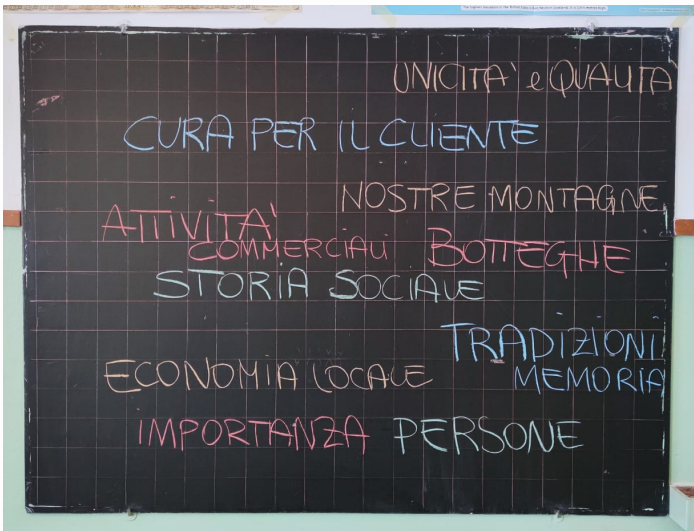 UNICITA' e QUALITÀ
CURA PER IL CLIENTE
NOSTRE MONTAGNE
ATTIVITA'
COMMERCIALI BOTTEGHE
STORIA SOCIALE
TRADIZIONI
MEMORIA
ECONOMIA LOCALE
IMPORTANZA PERSONE